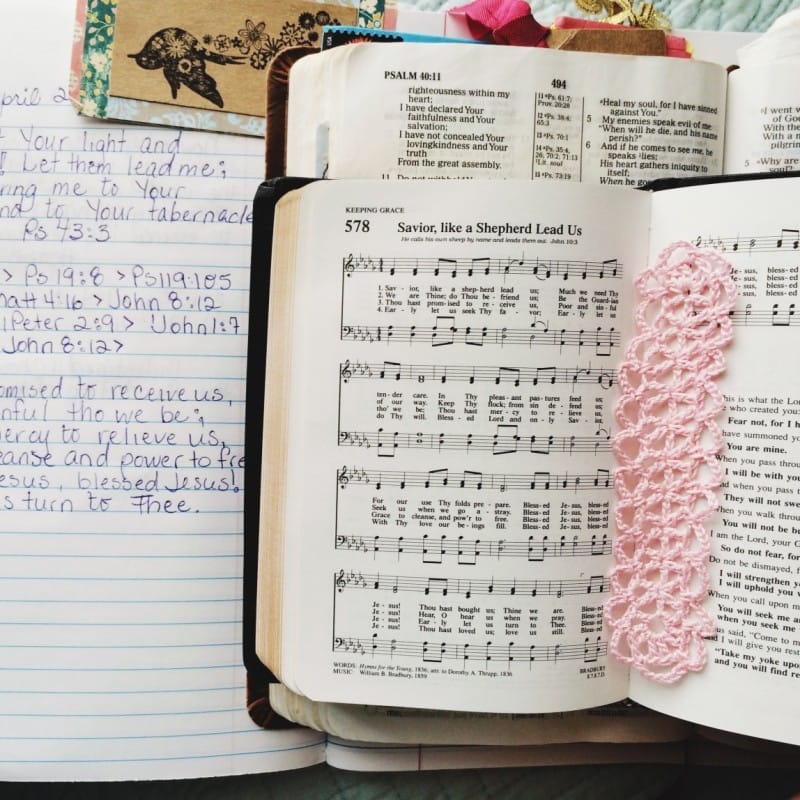 April 2
Your light and
Let them lead me;
ring me to Your
to Your tabernacle
Ps 43:3
> Ps 19:8 > Ps 119:105
Matt 4:16 > John 8:12
1 Peter 2:9 > 1 John 1:7
John 8:12>
omised to receive us,
nful tho we be;
ercy to relieve us,
eanse and power to fre
esus, blessed Jesus!
s turn to Thee.
PSALM 40:11
494
righteousness within my
heart;
I have declared Your
faithfulness and Your
salvation;
I have not concealed Your
lovingkindness and Your
truth
From the great assembly.
11 Do not withhold
11 Ps. 61:7;
Prov. 20:28
12 Ps. 38:4;
65:3
13 Ps. 70:1
14 Ps. 35:4,
26; 70:2; 71:13
Lit. soul
15 Ps. 73:19
"Heal my soul, for I have sinned
against You."
5 My enemies speak evil of me
"When will he die, and his name
perish?"
6 And if he comes to see me, he
speaks lies;
His heart gathers iniquity to
itself;
When he go
"I went w
of Go
With the
With a m
pilgrin
5 "Why are
KEEPING GRACE
578 Savior, like a Shepherd Lead Us
He calls his own sheep by name and leads them out. John 10:3
1. Sav - ior, like a shep-herd lead us; Much we need Thy
2. We are Thine; do Thou be - friend us; Be the Guard-ian
3. Thou hast prom-ised to re - ceive us, Poor and sin-ful
4. Ear - ly let us seek Thy fa - vor; Ear - ly let us
ten-der care. In Thy pleas-ant pas-tures feed us;
of our way. Keep Thy flock; from sin de - fend us;
tho' we be; Thou hast mer - cy to re - lieve us,
do Thy will. Bless-ed Lord and on - ly Sav - ior,
For our use Thy folds pre - pare. Bless-ed Je - sus, bless-ed
Seek us when we go a - stray. Bless-ed Je - sus, bless-ed
Grace to cleanse, and pow'r to free. Bless-ed Je - sus, bless-ed
With Thy love our be - ings fill. Bless-ed Je - sus, bless-ed
Je - sus! Thou hast bought us; Thine we are. Bless-ed
Je - sus! Hear, O hear us when we pray. Bless-ed
Je - sus! Ear - ly let us turn to Thee. Bless-ed
Je - sus! Thou hast loved us; love us still. Bless-ed
WORDS: Hymns for the Young, 1836; attr. to Dorothy A. Thrupp, 1836
MUSIC: William B. Bradbury, 1859
BRADBURY
8.7.8.7.D.
Je - sus, bless-ed
Je - sus, bless-ed
Je - sus, bless-ed
Je - sus, bless-ed
his is what the Lor
e who created you
Fear not, for I h
have summoned yo
You are mine.
When you pass throug
I will be with yo
and when you pass
They will not swe
When you walk throu
You will not be bu
I am the Lord, your G
So do not fear, for
Do not be dismayed, f
I will strengthen y
I will uphold you v
When you call upon m
You will seek me a
when you seek me
us said, "Come to m
and I will give you rest
"Take my yoke upo
and you will find re